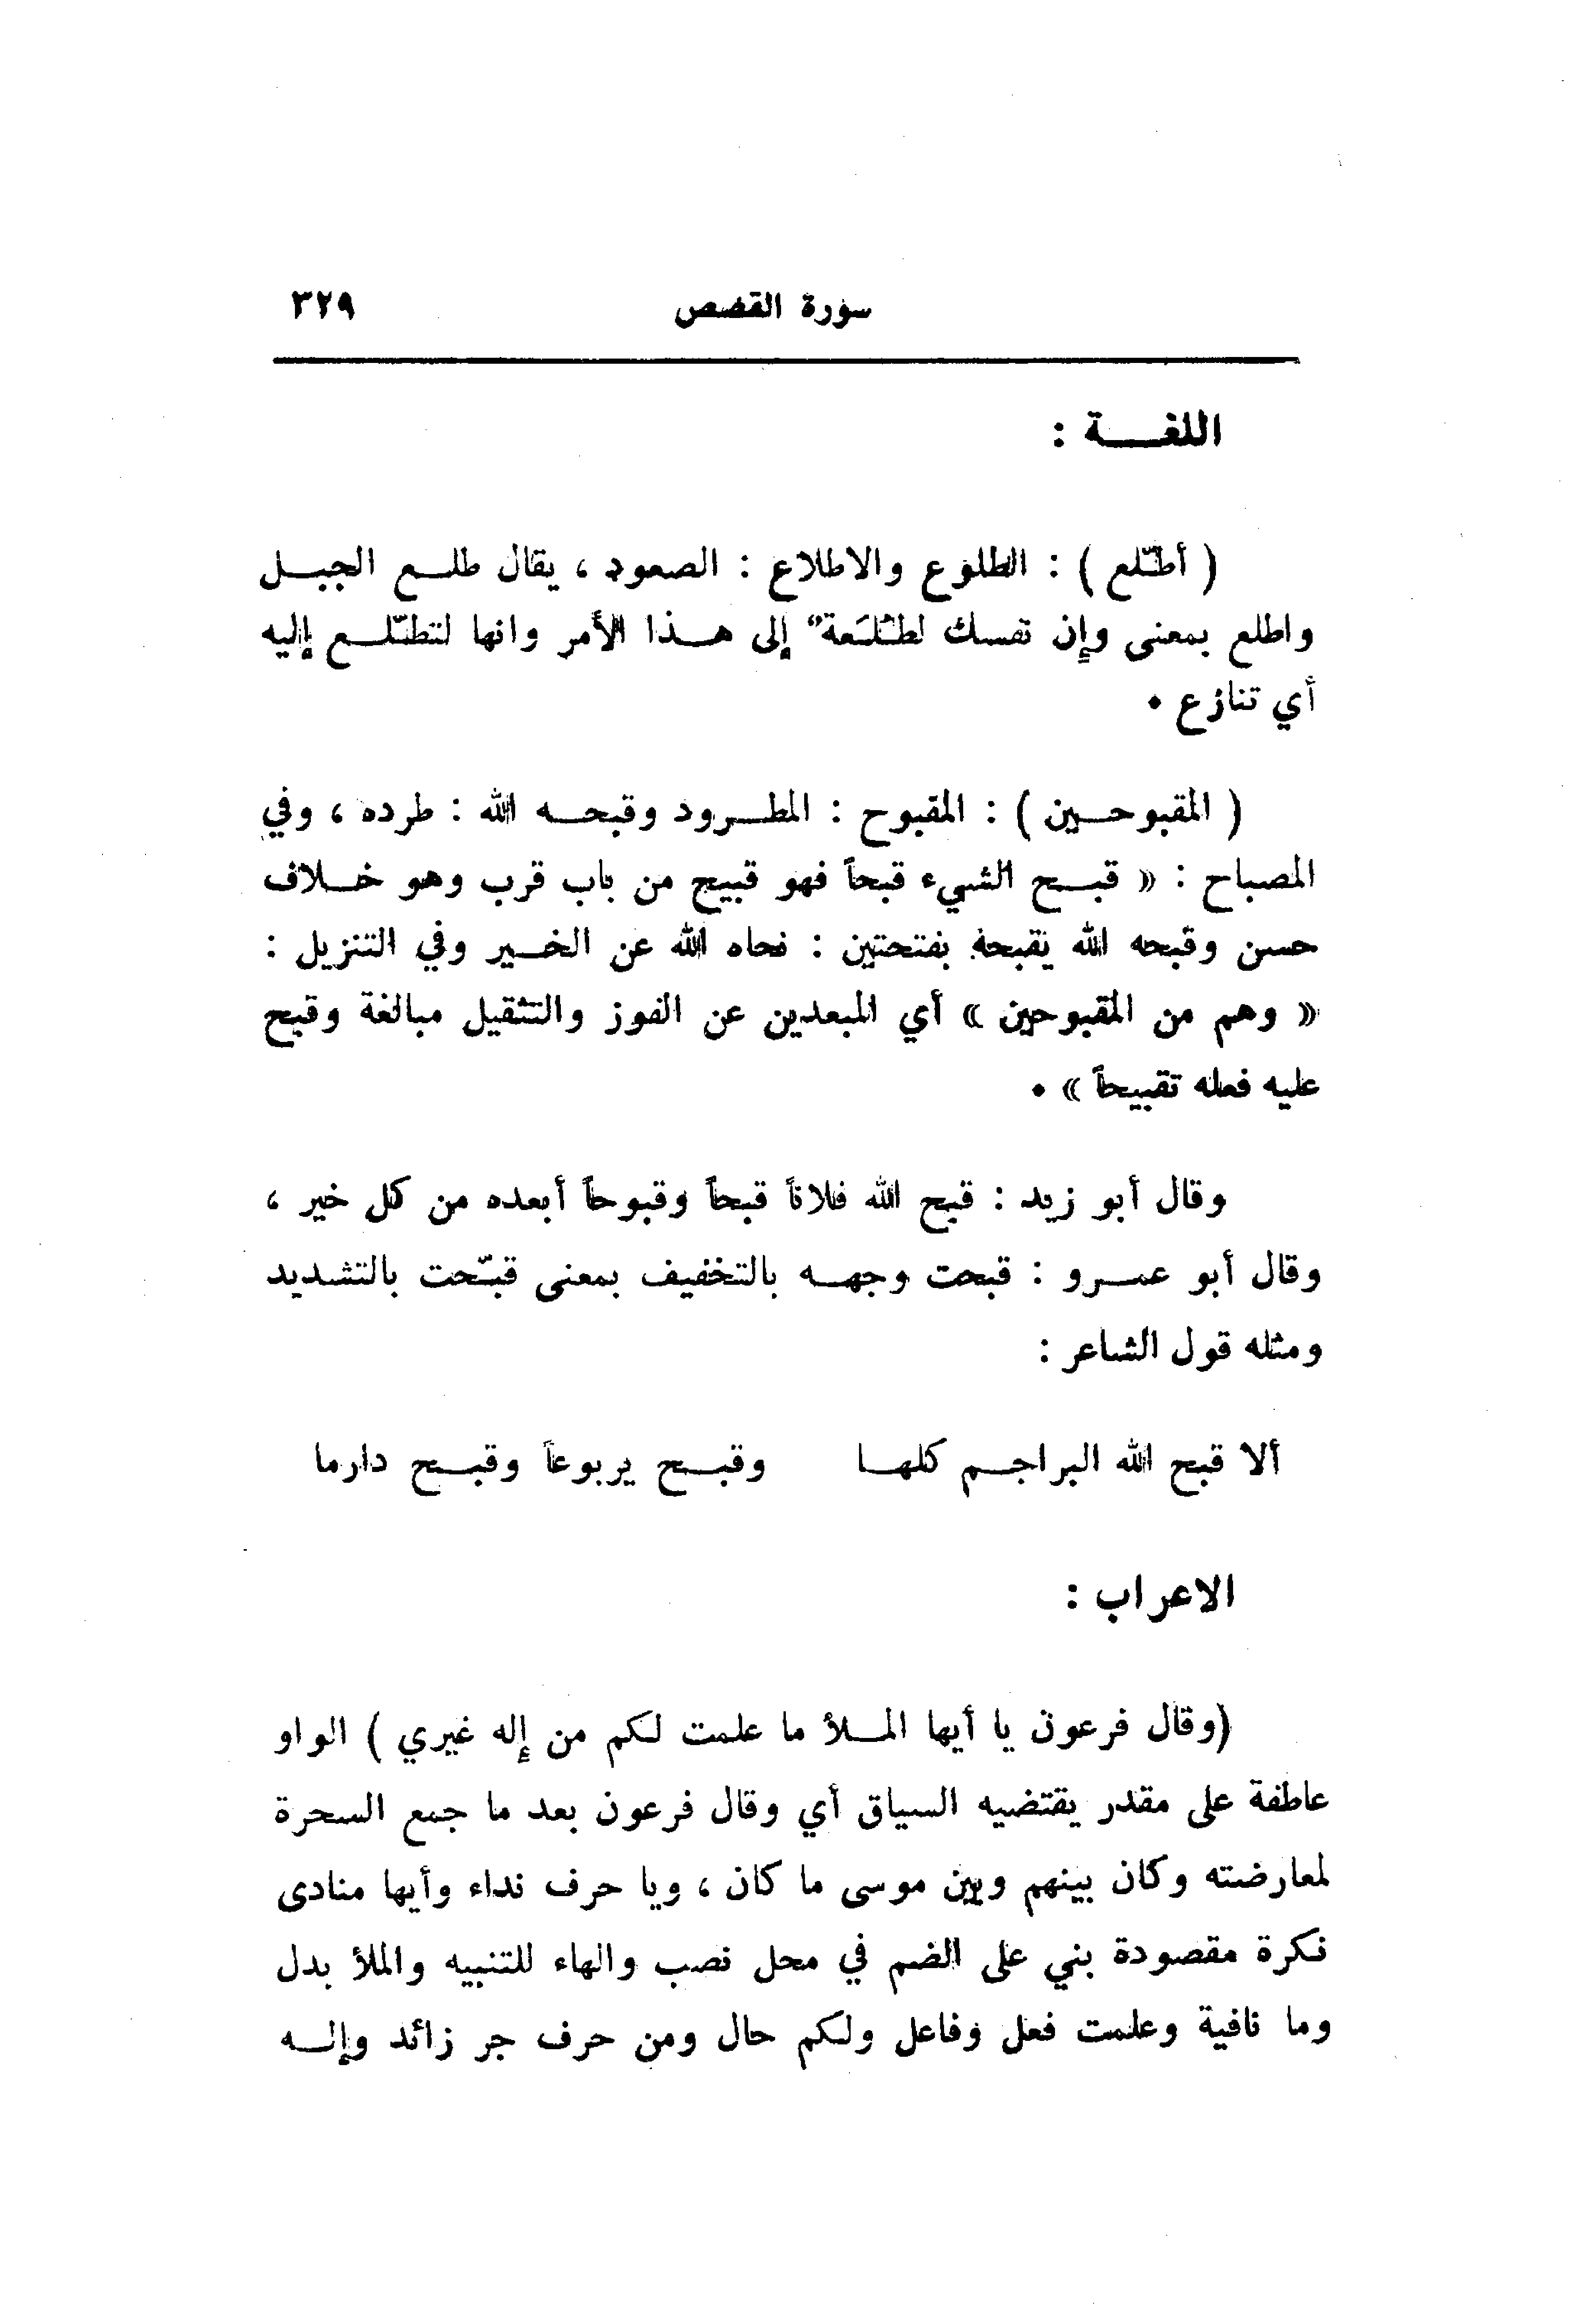 سورة القصص ٣٢٩
اللغة :
( أطّلع ) : الطلوع والاطلاع : الصعود ، يقال طلع الجبل
واطلع بمعنى وإن نفسك لطُلَعة إلى هذا الأمر وانها لتطّلع إليه
أي تنازع .
( المقبوحين ) : المقبوح : المطرود وقبحه الله : طرده ، وفي
المصباح : « قبح الشيء قبحاً فهو قبيح من باب قرب وهو خلاف
حسن وقبحه الله يقبحه بفتحتين : نحاه الله عن الخير وفي التنزيل :
« وهم من المقبوحين » أي المبعدين عن الفوز والتثقيل مبالغة وقبح
عليه فعله تقبيحاً » .
وقال أبو زيد : قبح الله فلاناً قبحاً وقبوحاً أبعده من كل خير ،
وقال أبو عمرو : قبحت وجهه بالتخفيف بمعنى قبّحت بالتشديد
ومثله قول الشاعر :
ألا قبح الله البراجم كلها وقبح يربوعاً وقبح دارما
الاعراب :
(وقال فرعون يا أيها الملأ ما علمت لكم من إله غيري ) الواو
عاطفة على مقدر يقتضيه السياق أي وقال فرعون بعد ما جمع السحرة
لمعارضته وكان بينهم وبين موسى ما كان ، ويا حرف نداء وأيها منادى
نكرة مقصودة بني على الضم في محل نصب والهاء للتنبيه والملأ بدل
وما نافية وعلمت فعل وفاعل ولكم حال ومن حرف جر زائد وإله